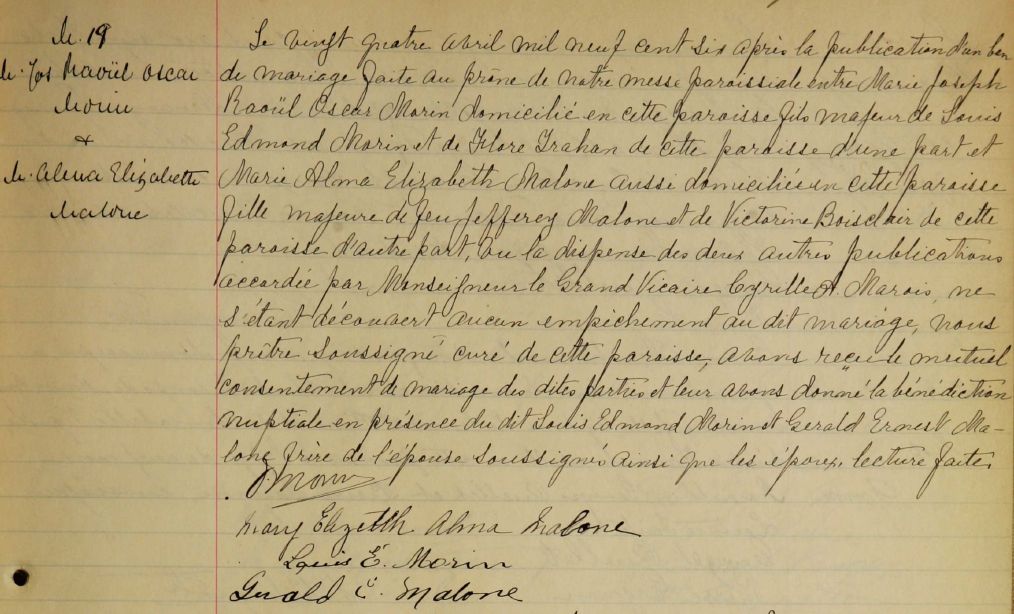 M. 19
M. Jos Raoül Oscar
Morin
&
M. Alma Elizabeth
Malone
Le vingt quatre avril mil neuf cent six après la publication d'un ban
de mariage faite au prône de notre messe paroissiale entre Marie Joseph
Raoül Oscar Morin domicilié en cette paroisse fils majeur de Louis
Edmond Morin et de Flore Trahan de cette paroisse d'une part et
Marie Alma Elizabeth Malone aussi domiciliée en cette paroisse
fille majeure de feu Jefferey Malone et de Victorine Boisclair de cette
paroisse d'autre part, vu la dispense des deux autres publications
accordée par Monseigneur le Grand Vicaire Cyrille A. Marois, ne
s'étant découvert aucun empêchement au dit mariage, nous
prêtre soussigné curé de cette paroisse, avons reçu le mutuel
consentement de mariage des dites parties et leur avons donné la bénédiction
nuptiale en présence du dit Louis Edmond Morin et Gerald Ernest Ma-
lone frère de l'épouse soussignés ainsi que les époux, lecture faite.
Morin
Mary Elizetth Alma Malone
Louis E. Morin
Gerald E. Malone